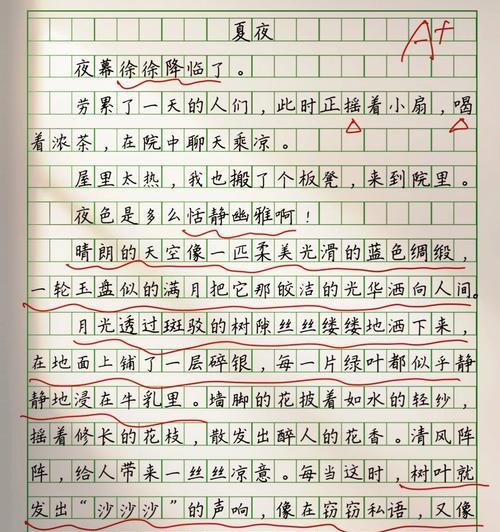 夏夜
A+
夜幕徐徐降临了。
劳累了一天的人们，此时正摇着小扇，喝
着浓茶，在院中聊天乘凉。
屋里太热，我也搬了个板凳，来到院里。
夜色是多么恬静幽雅啊！
晴朗的天空像一匹柔美光滑的蓝色绸缎，
一轮玉盘似的满月把它那皎洁的光华洒向人间。
月光透过斑驳的树隙丝丝缕缕地洒下来，
在地面上铺了一层碎银，每一片绿叶都似乎静
静地浸在牛乳里。墙脚的花披着如水的轻纱，
摇着修长的花枝，散发出醉人的花香。清风阵
阵，给人带来一丝丝凉意。每当这时，树叶就
发出“沙沙沙”的声响，像在窃窃私语，又像